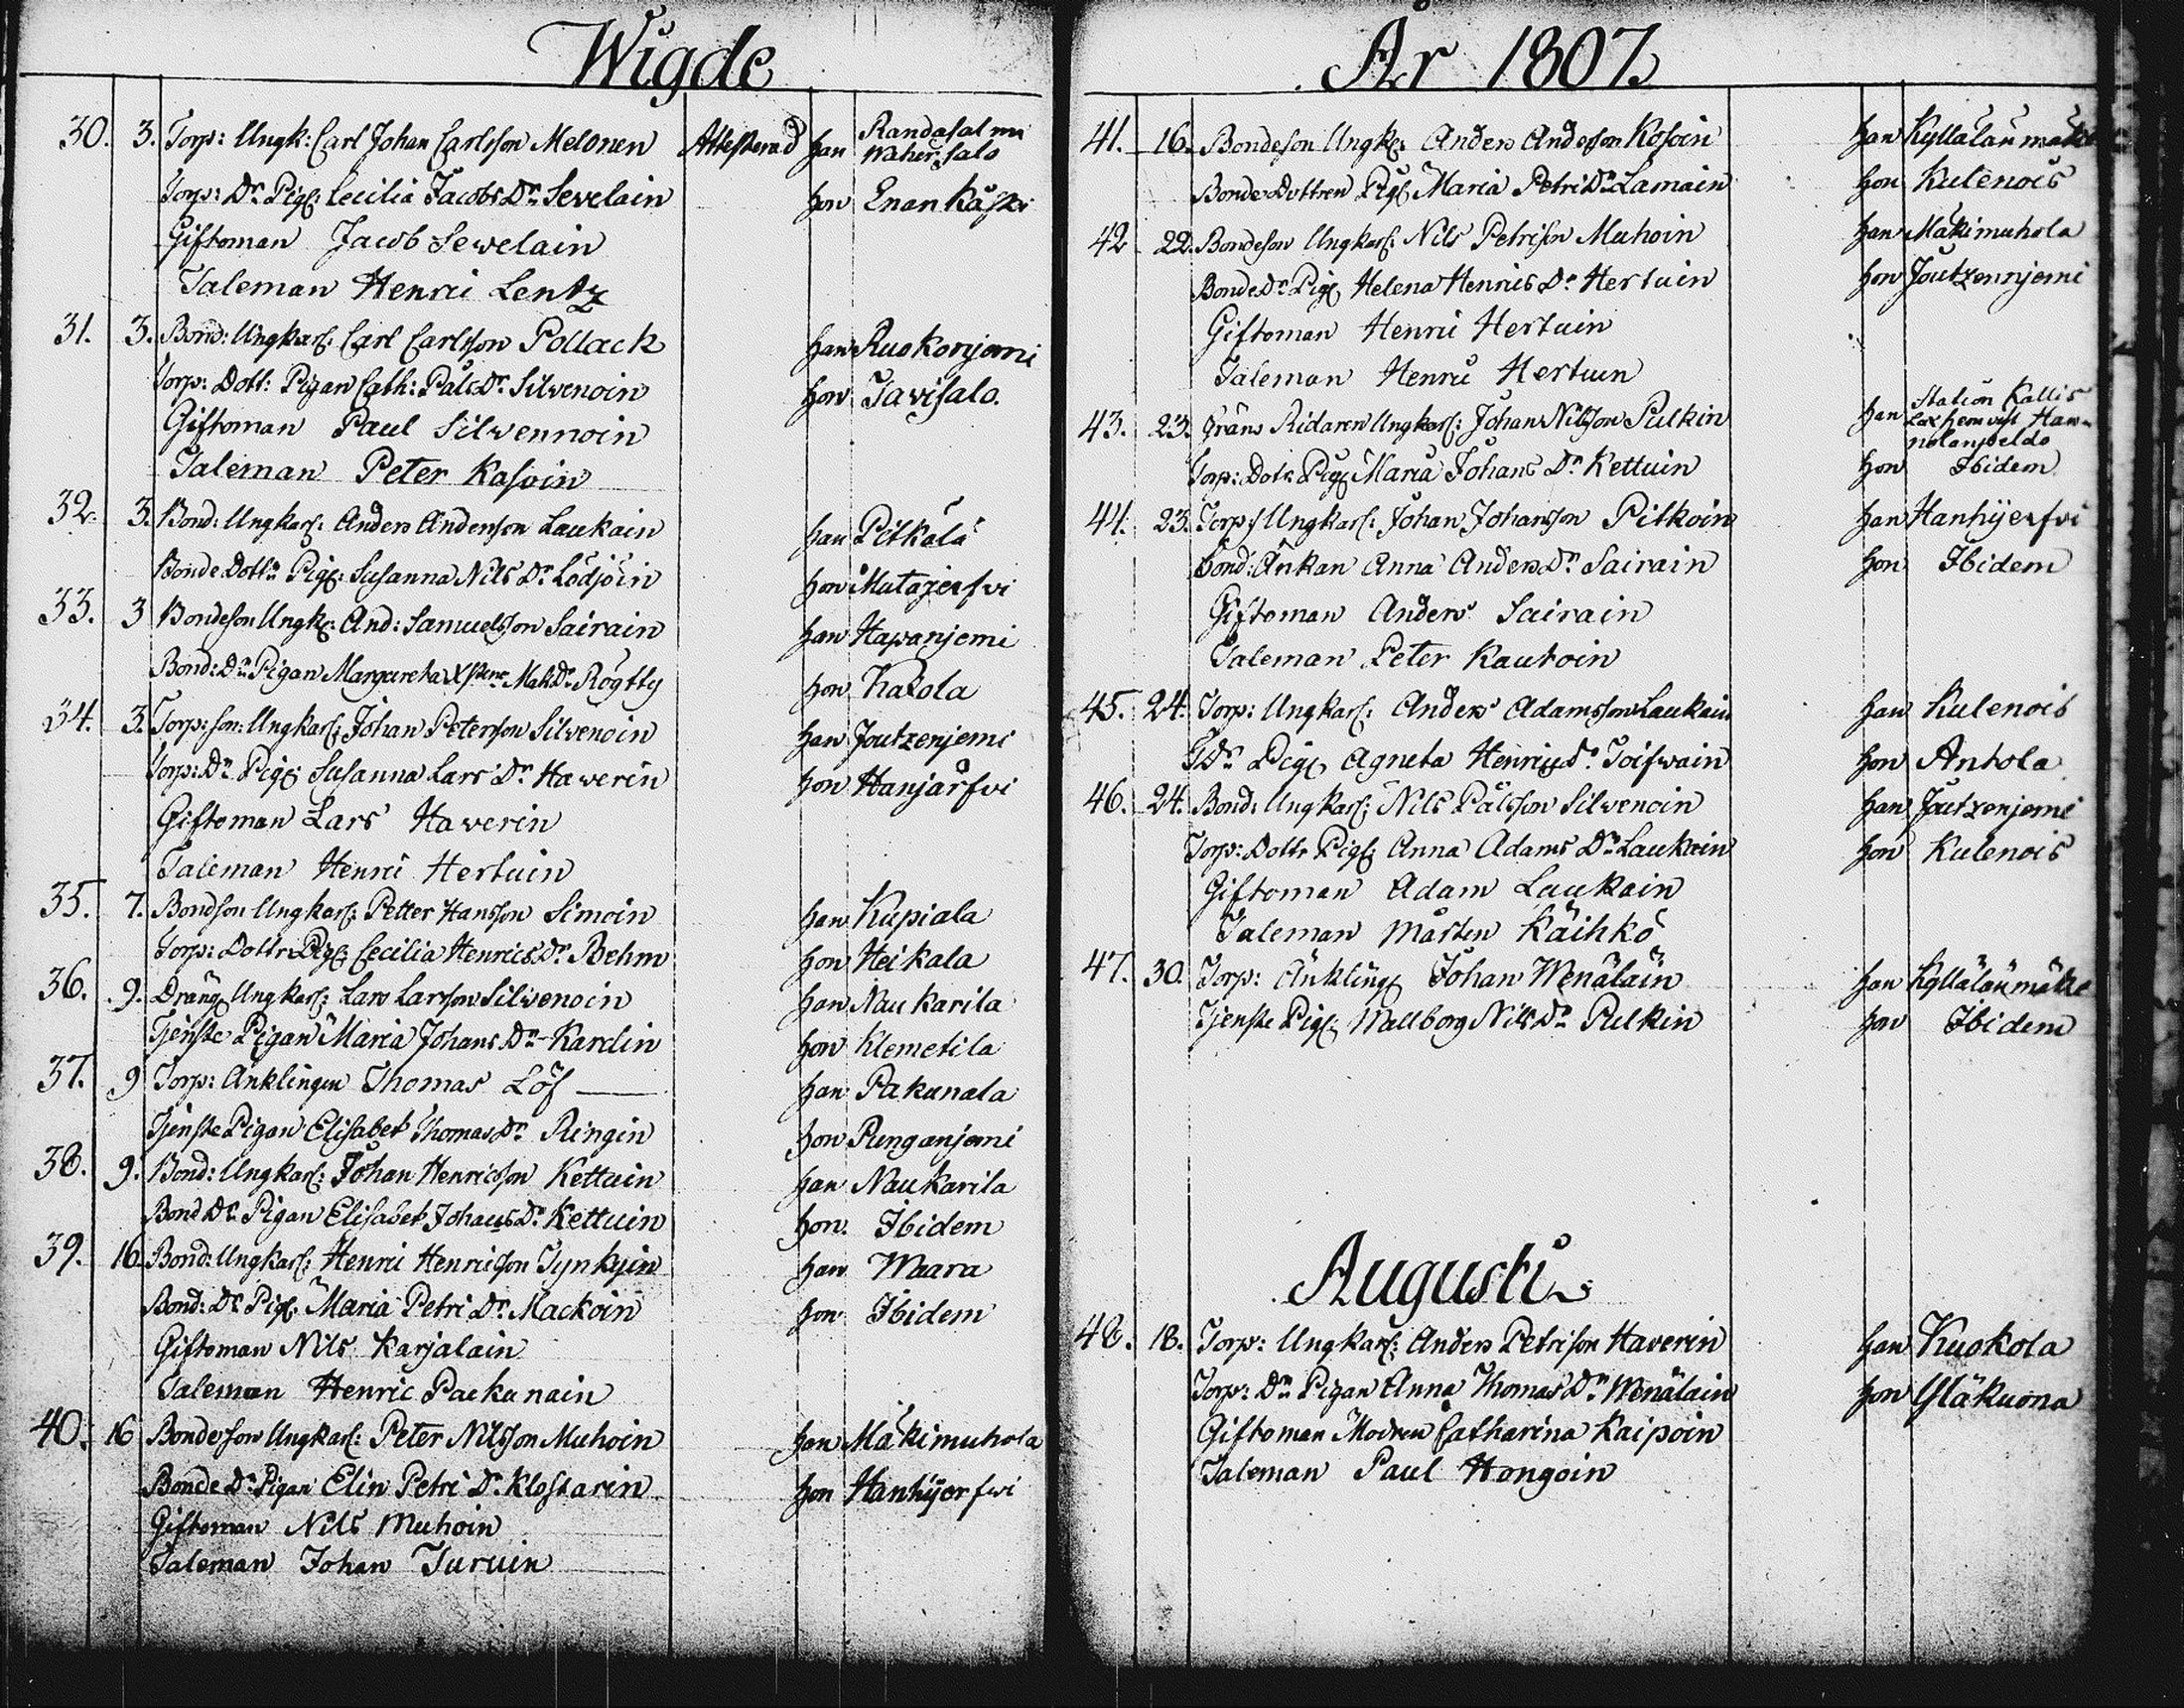 Wigde
30. 3. Torp: Ungk: Carl Johan Carlsson Melonen Attesterad han Randasalmi Wahersalo
Torp: Dr Pig: Cecilia Jacobs Dr Sevelain hon Enankåski
Giftoman Jacob Sewelain
Taleman Henric Lentz
31. 3. Bond: Ungkarl: Carl Carlsson Pollack han Ruokonjemi
Torp: Dott: Pigan Cath: Påls Dr Silvenoin hon Tavisalo.
Giftoman Paul Silvennoin
Taleman Peter Kasoin
32. 3. Bond: Ungkarl: Anders Andersson Laukain han Pitkälä
Bonde Dottn Pig: Susanna Nils Dr Lödjöin hon Matajerfvi
33. 3 Bondeson Ungk: And: Samuelsson Sairain han Hapanjemi
Bond: Dr Pigan Margareta Matts Dr Rögtty hon Kakola
34. 3. Torp: son: Ungkarl: Johan Petersson Silvenoin han Joutzenjemi
Torp: Dr Pig: Susanna Lars Dr Haverin hon Hanjärfvi
Giftoman Lars Haverin
Taleman Henric Hertuin
35. 7. Bondson Ungkarl: Petter Hansson Simoin han Kupiala
Torp: Dottr Pig: Cecilia Henrics Dr Behm hon Heikala
36. 9. Dräng Ungkarl: Lars Larsson Silvenoin han Naukarila
Tjenste Pigan Maria Johans Dr Kardin hon Klemetila
37. 9 Torp: Anklingen Thomas Löf han Pakunala
Tjenste Pigan Elisabet Thomas Dr Ringin hon Punganjemi
38. 9. Bond: Ungkarl: Johan Henricsson Kettuin han Naukarila
Bond Dr Pigan Elisabet Johans Dr Kettuin hon. Ibidem
39. 16 Bond: Ungkarl: Henric Henricsson Tynkyin han Maara
Bond: Dr Pig: Maria Petri Dr Mackoin hon Ibidem
Giftoman Nils Karjalain
Taleman Henric Packunain
40. 16 Bondeson Ungkarl: Peter Nilsson Muhoin han Mäkimuhola
Bonde Dr Pigan Elin Petri Dr Klostarin hon Hanhijerfwi
Giftoman Nils Muhoin
Taleman Johan Turuin
År 1807.
41. 16. Bondeson Ungk: Anders Andersson Kosoin han Kyllälänmäki
Bonde Dottren Pig: Maria Petri Dr Lamain hon Kulenois
42 22. Bondeson Ungkarl: Nils Petrison Muhoin han Mäkimuhola
Bonde Dr Pig: Helena Henrics Dr Hertuin hon Joutzennjemi
Giftoman Henric Hertuin
Taleman Henric Hertuin
43. 23. Gräns Ridaren Ungkarl: Johan Nilsson Pulkin han Station Kallis
Torp: Dott: Pig: Maria Johans Dr Kettuin hon Ibidem
44. 23. Torp: Ungkarl: Johan Johansson Pitkoin han Hanhijerfvi
Bond: Änkan Anna Anders Dr Sairain hon Ibidem
Giftoman Anders Sairain
Taleman Peter Kautoin
45. 24. Torp: Ungkarl: Anders Adamsson Laukain han Kulenois
T Dr Pig: Agneta Henrics Dr Toifwain hon Antola
46. 24. Bond: Ungkarl: Nils Pålsson Silvenoin han Joutzenjemi
Torp: Dottr Pig: Anna Adams Dr Laukain hon Kulenois
Giftoman Adam Laukain
Taleman Mårten Käihkö
47. 30. Torp: Änkling Johan Wenäläin han Kyllälänmäke
Tjenste Pig: Wallborg Nils Dr Pulkin hon Ibidem
Augusti
48. 18. Torp: Ungkarl: Anders Petrison Haverin han Kuokola
Torp: Dr Pigan Anna Thomas Dr Wenäläin hon Yläkuona
Giftoman Modren Catharina Kaipoin
Taleman Paul Hongoin